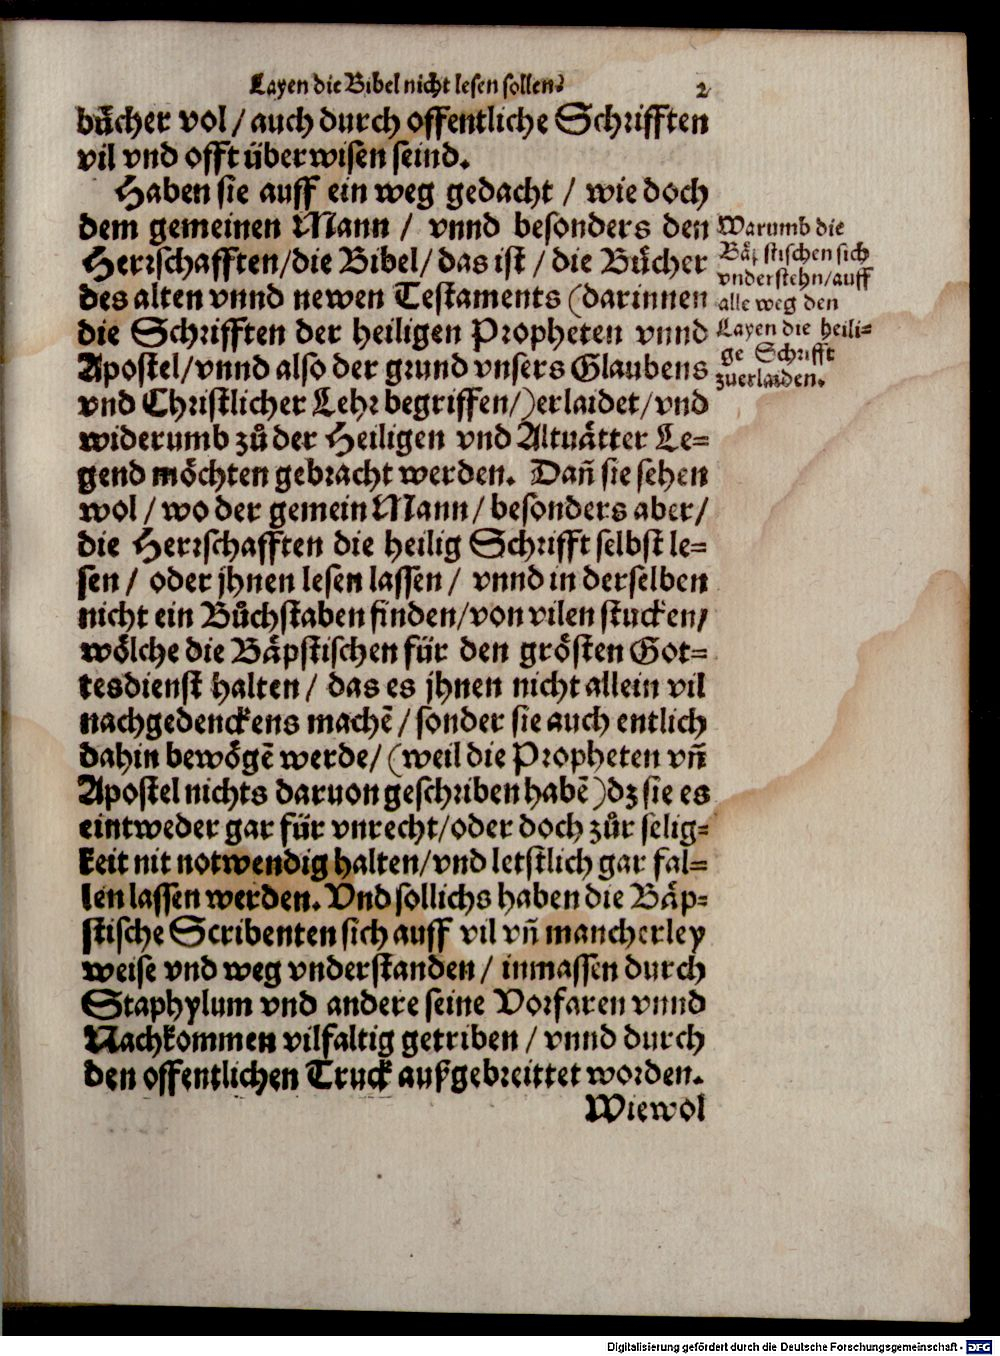 Layen die Bibel nicht lesen sollen? 2
bücher vol / auch durch offentliche Schrifften
vil vnd offt überwisen seind.
Haben sie auff ein weg gedacht / wie doch
dem gemeinen Mann / vnnd besonders den
Herrschafften / die Bibel / das ist / die Bücher
des alten vnnd newen Testaments (darinnen
die Schrifften der heiligen Propheten vnnd
Apostel / vnnd also der grund vnsers Glaubens
vnd Christlicher Lehr begriffen /) erlaidet / vnd
widerumb zů der Heiligen vnd Altuätter Le=
gend möchten gebracht werden. Dañ sie sehen
wol / wo der gemein Mann / besonders aber /
die Herrschafften die heilig Schrifft selbst le=
sen / oder jhnen lesen lassen / vnnd in derselben
nicht ein Bůchstaben finden / von vilen stucken /
wölche die Bäpstischen für den grösten Got=
tesdienst halten / das es jhnen nicht allein vil
nachgedenckens machẽ / sonder sie auch entlich
dahin bewögẽ werde / (weil die Propheten vñ
Apostel nichts daruon geschriben habẽ) dz sie es
eintweder gar für vnrecht / oder doch zůr selig=
keit nit notwendig halten / vnd letstlich gar fal=
len lassen werden. Vnd sollichs haben die Bäp=
stische Scribenten sich auff vil vñ mancherley
weise vnd weg vnderstanden / inmassen durch
Staphylum vnd andere seine Vorfaren vnnd
Nachkommen vilfaltig getriben / vnnd durch
den offentlichen Truck außgebreittet worden.
Wiewol
Warumb die
Bäpstischen sich
vnderstehn / auff
alle weg den
Layen die heili=
ge Schrifft
zuerlaiden.
Digitalisierung gefördert durch die Deutsche Forschungsgemeinschaft - DFG